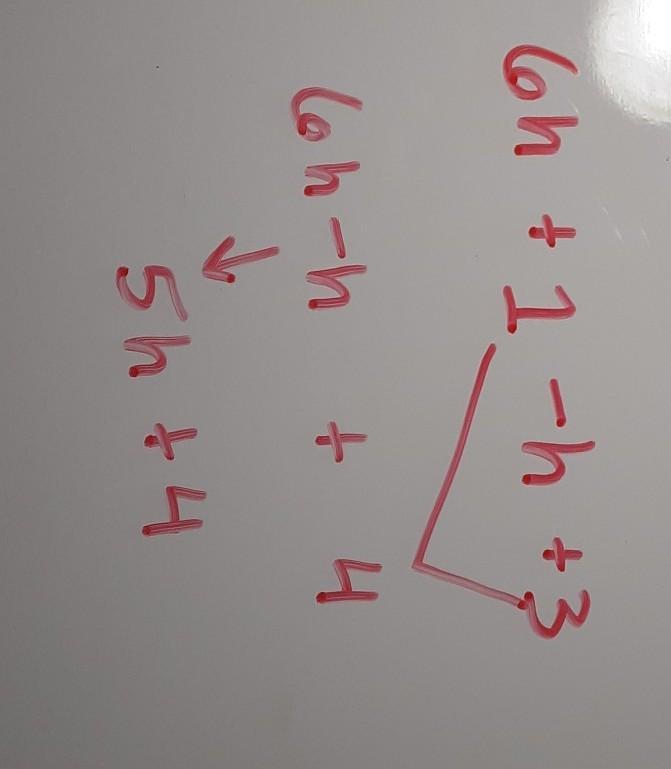 6h + 1 - h + 3
6h - h + 4
5h + 4